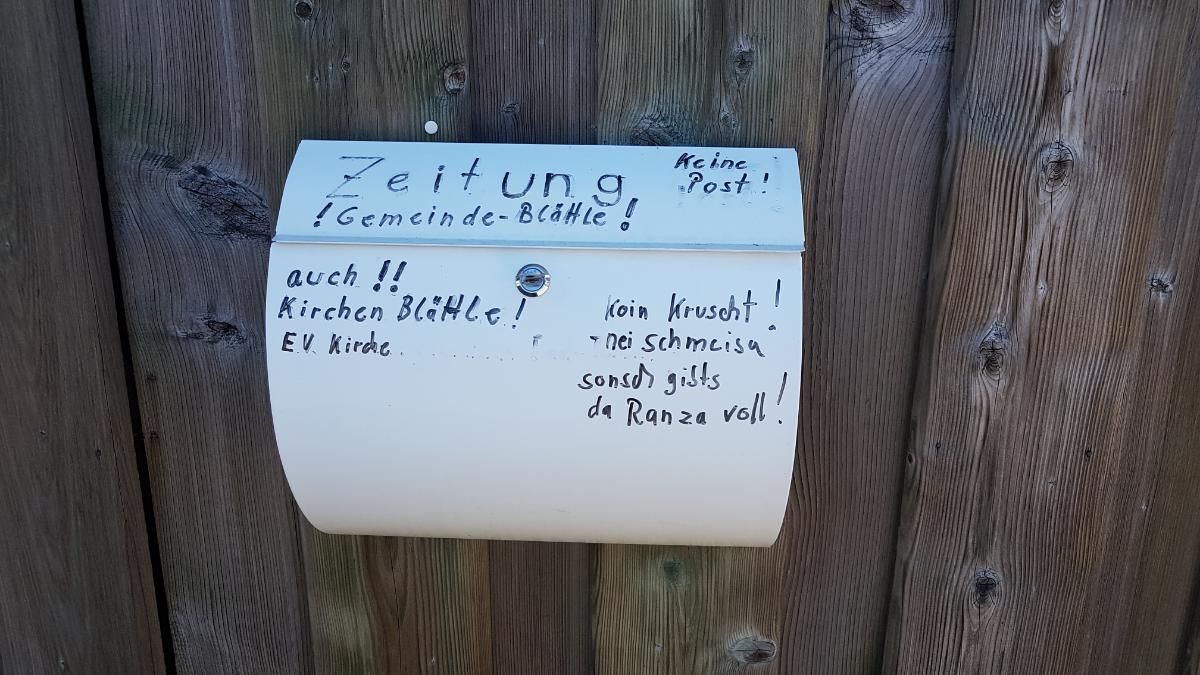 Zeitung
!Gemeinde-Blättle!
Keine
Post!
auch !!
Kirchen Blättle!
EV. Kirche
koin Kruscht!
-nei schmeisa
sonsch gibts
da Ranza voll!